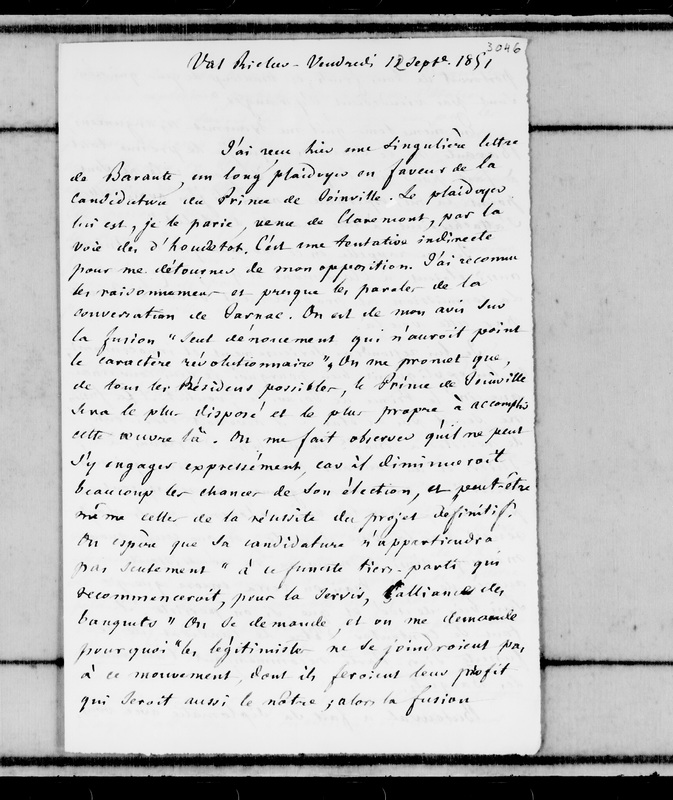 3046
Val Richer - Vendredi 12 Septe. 1851
J'ai reçu hier une singulière lettre
de Barante, un long plaidoyer en faveur de la
candidature du Prince de Joinville. Le plaidoyer
lui est, je le parie, venu de Claremont, par la
voie des d'houdetot. C'est une tentative indirecte
pour me détourner de mon opposition. J'ai reconnu
les raisonnemens et presque les paroles de la
conversation de Jarnac. On est de mon avis sur
la fusion "seul dénouement qui n'auroit point
le caractère révolutionnaire". On me promet que,
de tous les Présidens possibles, le Prince de Joinville
sera le plus disposé et le plus propre à accomplir
cette œuvre là. On me fait observer qu'il ne peut
s'y engager expressément, car il diminueroit
beaucoup les chances de son élection, et peut-être
même celles de la réussite du projet définitif.
On espère que sa candidature n'appartiendra
pas seulement "à ce funeste tiers-parti qui
recommenceroit, pour la servir, l'alliance des
banquets" On se demande, et on me demande
pourquoi "les légitimistes ne se joindroient pas
à ce mouvement, dont ils feroient leur profit
qui seroit aussi le nôtre ; alors la fusion